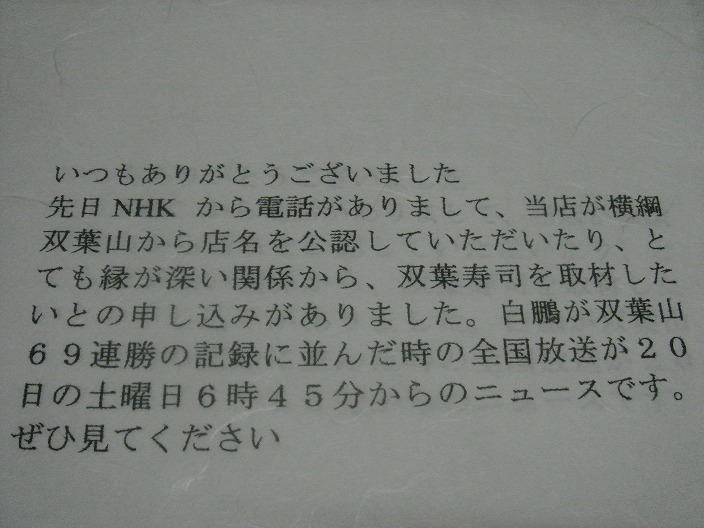 いつもありがとうございました
先日NHK から電話がありまして、当店が横綱
双葉山から店名を公認していただいたり、と
ても縁が深い関係から、双葉寿司を取材した
いとの申し込みがありました。白鵬が双葉山
６９連勝の記録に並んだ時の全国放送が２０
日の土曜日６時４５分からのニュースです。
ぜひ見てください